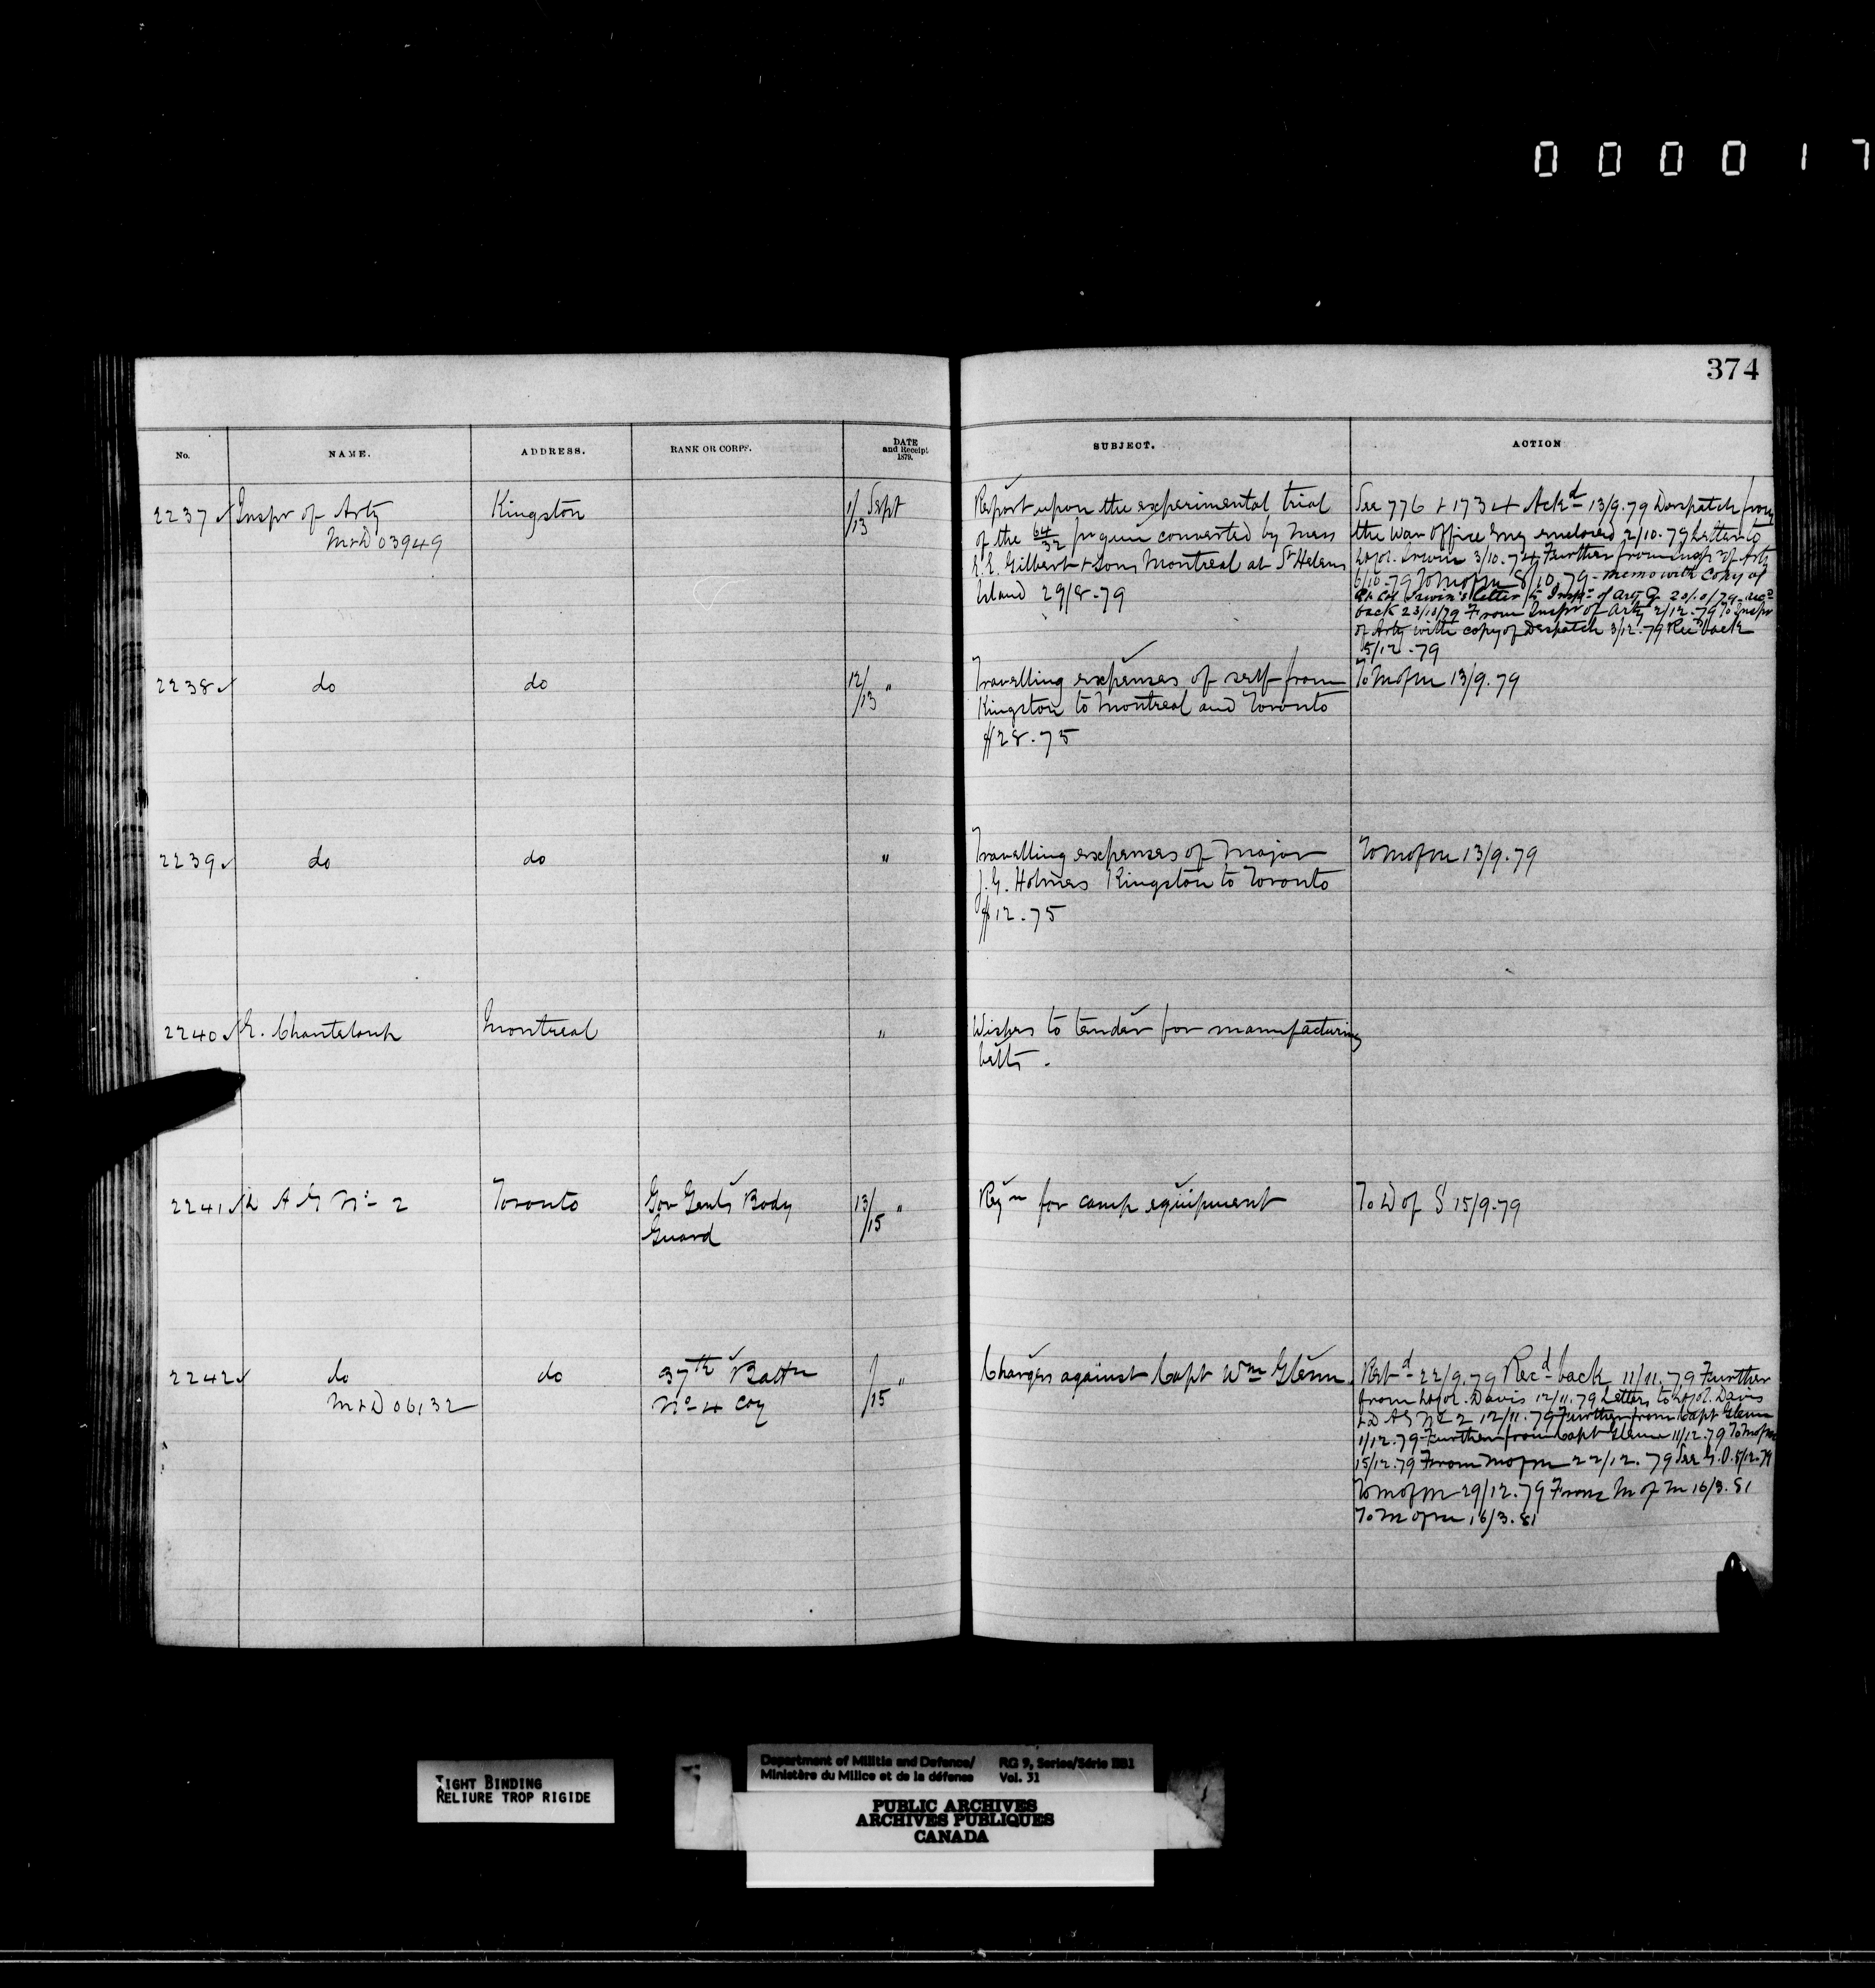 000017
374
No. NAME. ADDRESS. RANK OR CORPS. DATE and Receipt 1879. SUBJECT. ACTION
2237 Inspr of Arty Kingston 1/13 Sept Report upon the experimental trial See 776 + 1734 Ackd 13/9.79 Despatch from
M&D 03949 of the 64/32 pr gun converted by Mess the War Office Eng enclosed 2/10.79 Letter to
E.E. Gilbert & Sons Montreal at St Helens Lt Col. Irwin 3/10.79 Further from Inspr of Arty
Island 29/8-79 6/10-79 To M of M 8/10.79 - memo with copy of
Lt Col Irwin's letter to Inspr of Arty 20/10/79 - recd
back 23/10/79 From Inspr of Arty 2/12.79 To Inspr
of Arty with copy of Despatch 3/12.79 Recd back
5/12-79
2238 do do 12/13 " Travelling expenses of self from To M of M 13/9.79
Kingston to Montreal and Toronto
$28.75
2239 do do " Travelling expenses of Major To M of M 13/9.79
J.G. Holmes Kingston to Toronto
$12.75
2240 E. Chanteloup Montreal " Wishes to tender for manufacturing
belts -
2241 D A G No 2 Toronto Gov Genls Body 13/15 " Reqn for camp equipment To D of S 15/9.79
Guard
2242 do do 37th Battn /15 " Charges against Capt Wm Glenn. Retd 22/9.79 Recd back 11/11.79 Further
M&D 06132 No 4 Coy from Lt Col. Davis 12/11.79 Letters to Lt Col. Davis
& D A G No 2 12/11.79 Further from Capt Glenn
1/12.79 Further from Capt Glenn 11/12.79 To M of M
15/12.79 From M of M 22/12.79 See G.O. 5/12.79
To M of M 29/12.79 From M of M 16/3.81
To M of M 16/3.81
TIGHT BINDING
RELIURE TROP RIGIDE
Department of Militia and Defence/ RG 9, Series/Série IIB1
Ministère du Milice et de la défense Vol. 31
PUBLIC ARCHIVES
ARCHIVES PUBLIQUES
CANADA